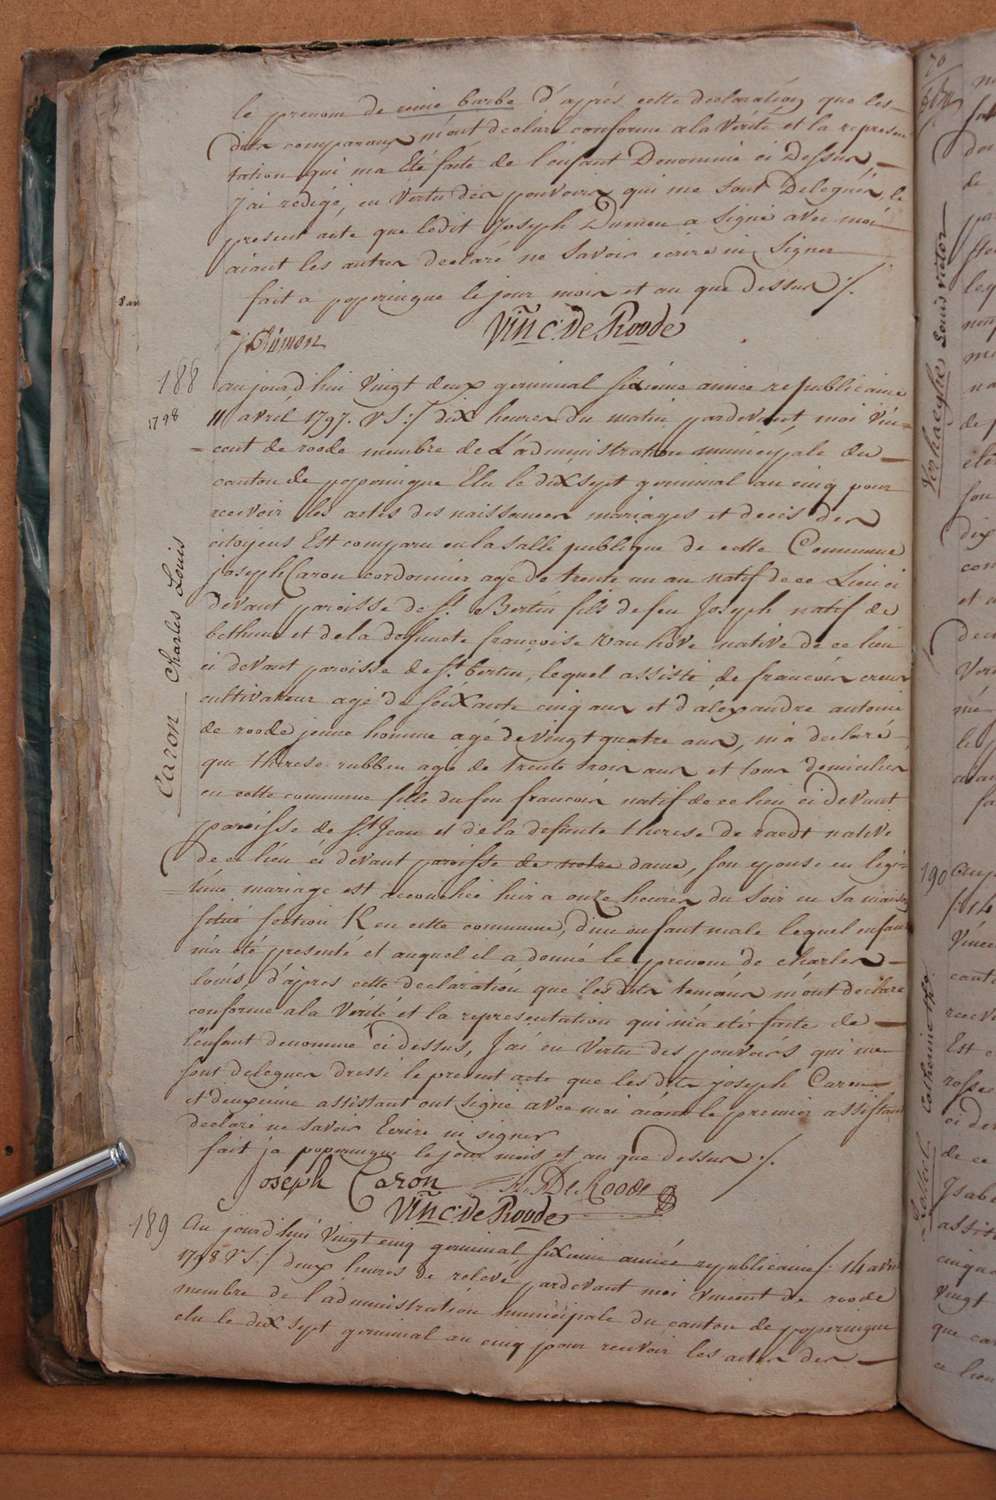 le prenom de reine barbe d'après cette declaration que les
dits comparans m'ont declaré conforme a la verité et la represen
tation qui ma eté faite de l'enfant Denommé ci Dessus,
J'ai redigé, en vertu des pouvoirs qui me sont Delegués, le
present acte que ledit Joseph Dumon a signé avec moi
aiant les autres declaré ne savoir ecrire ni signer
fait a poperingue le jour mois et an que dessus /.
J Dumon
Vinc: De Roode
188
1798
Caron Charles Louis
aujourd'hui vingt deux germinal sixieme année republicaine
11 avril 1797. vS:/ dix heures du matin pardevant moi Vin=
=cent de roode membre de L'administration municipale du
canton de poperingue Elu le dix sept germinal an cinq pour
recevoir les actes des naissances mariages et decès des
citoyens Est comparu en la salle publique de cette Commune
joseph Caron cordonnier agé de trente un an natif de ce Lieu ci
devant paroisse de St. Bertin fils de feu Joseph natif de
bethune et de la defuncte françoise van hove native de ce lieu
ci devant paroisse de St bertin, lequel assisté de francois
cultivateur agé de soixante cinq ans et d'alexandre antoine
de roode jeune homme agé de vingt quatre ans, m'a declaré
que therese rubben agé de trente trois ans et tous domiciliés
en cette commune fille du feu francois natif de ce lieu ci devant
paroisse de St. Jean et de la defunte therese de raedt native
de ce lieu ci devant paroisse de notre dame, son epouse en legi=
=time mariage est accouchée hier a onze heures du soir en sa maison
situé section K en cette commune, d'un enfant male lequel enfant
m'a été presenté et auquel il a donné le prenom de charles
louis, d'apres cette declaration que les dits temoins m'ont declaré
conforme a la vérité et la representation qui m'a eté faite de
l'enfant denommé ci dessus, J'ai en vertu des pouvoirs qui me
sont delegues dressé le present acte que les dits joseph Caron
et deuxieme assistant ont signé avec moi aiant le premier assistant
declaré ne savoir Ecrire ni signer
fait a poperingue le jour mois et an que dessus /.
Joseph Caron
A. De Roode
Vinc: De Roode
189
Au jourd'hui vingt cinq germinal sixieme année republicaine /. 14 avril
1798 vS:/ deux heures de relevé pardevant moi vincent de roode
membre de l'administration municipale du canton de poperingue
elu le dix sept germinal an cinq pour recevoir les actes des
Verhaeghe Louis victor
190